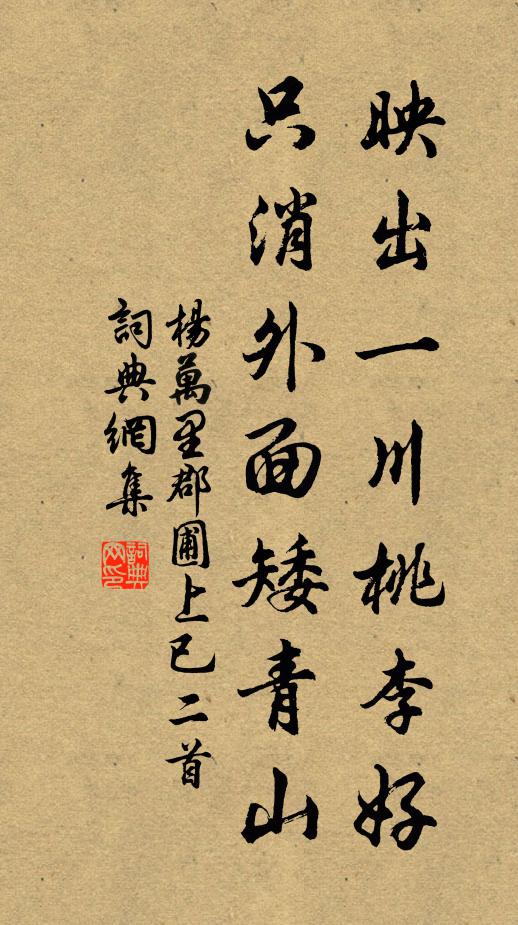 映出一川桃李好
只消外面矮青山
楊萬里郡圃上已二首
詞典網集
詞典网印